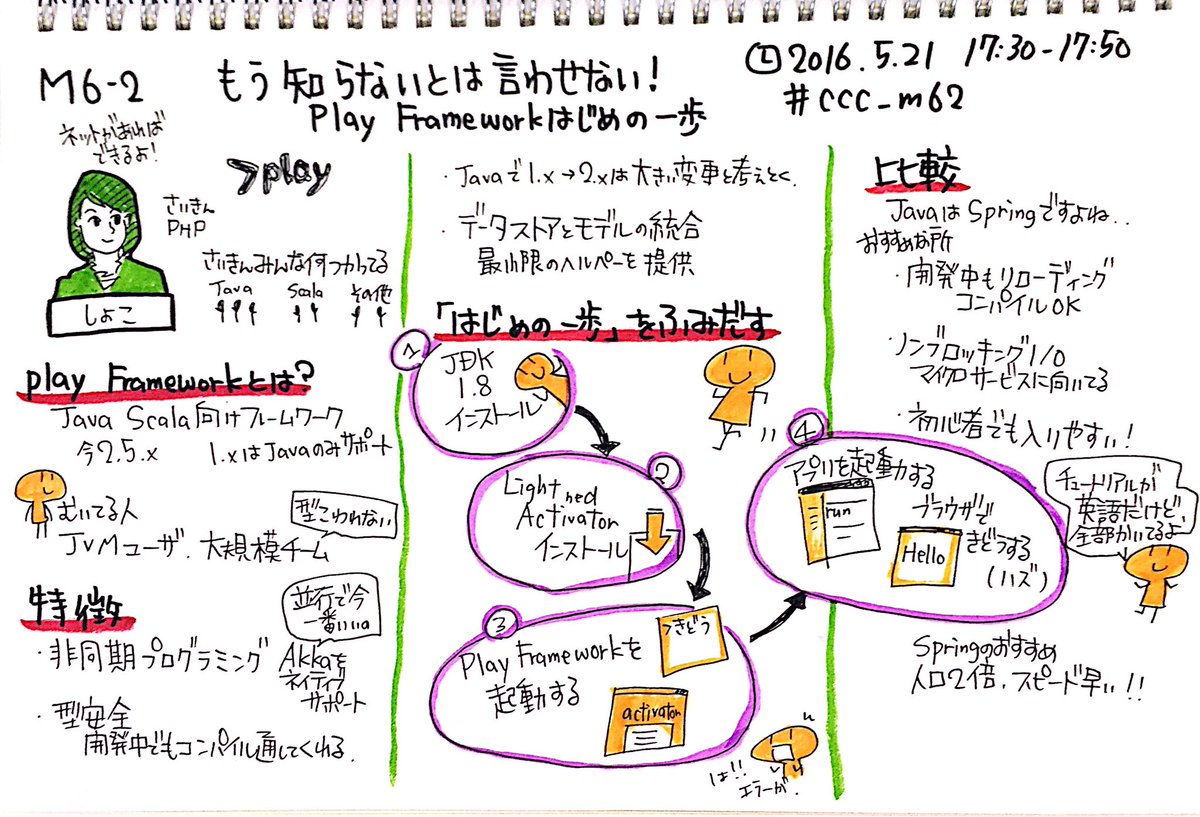 M6-2
もう知らないとは言わせない!
Play Frameworkはじめの一歩
2016.5.21 17:30-17:50
#ccc_m62
ネットがあれば
できるよ!
しょこ
さいきん
PHP
>play
さいきんみんな何つかってる
Java Scala その他
play Frameworkとは?
Java Scala向けフレームワーク
今2.5.x 1.xはJavaのみサポート
むいてる人
JVMユーザ.大規模チーム
型こわれない
特徴
・非同期プログラミング
並行で今
一番いいの
Akkaを
ネイティブ
サポート
・型安全
開発中でもコンパイル通してくれる.
・Javaで1.x→2.xは大きい変更と考えとく.
・データストアとモデルの統合
最小限のヘルパーを提供
「はじめの一歩」をふみだす
1
JDK
1.8
インストール
2
Light
ned
Activator
インストール
3
Play Frameworkを
起動する
>きどう
activator
は!!
エラーが.
4
アプリを起動する
run
ブラウザで
きどうする
(ハズ)
Hello
比較
JavaはSpringですよね..
おすすめな所
・開発中もリローディング
コンパイルOK
・ノンブロッキングI/O
マイクロサービスに向いてる
・初心者でも入りやすい!
チュートリアルが
英語だけど,
全部かいてるよ
Springのおすすめ
人口2倍.スピード早い!!